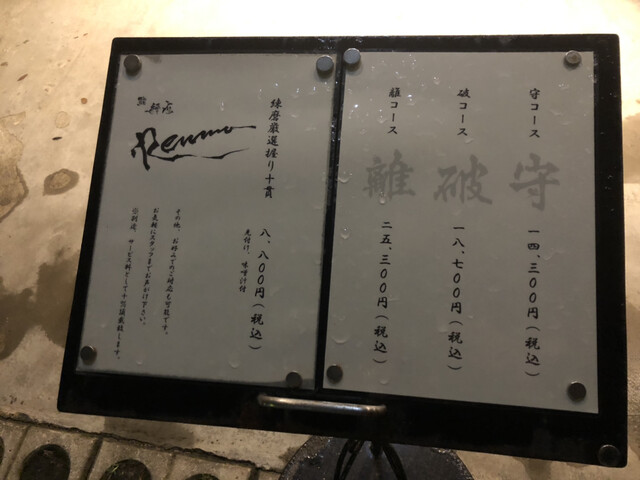 守コース 一四、三〇〇円(税込)
破コース 一八、七〇〇円(税込)
離コース 二五、三〇〇円(税込)
守
破
離
練磨厳選握り十貫 八、八〇〇円(税込)
先付け、味噌汁付
鮨 錬磨
Renma
その他、お好みでのご対応も可能です。
お気軽にスタッフまでお声がけ下さい。
※別途、サービス料として十%頂戴致します。